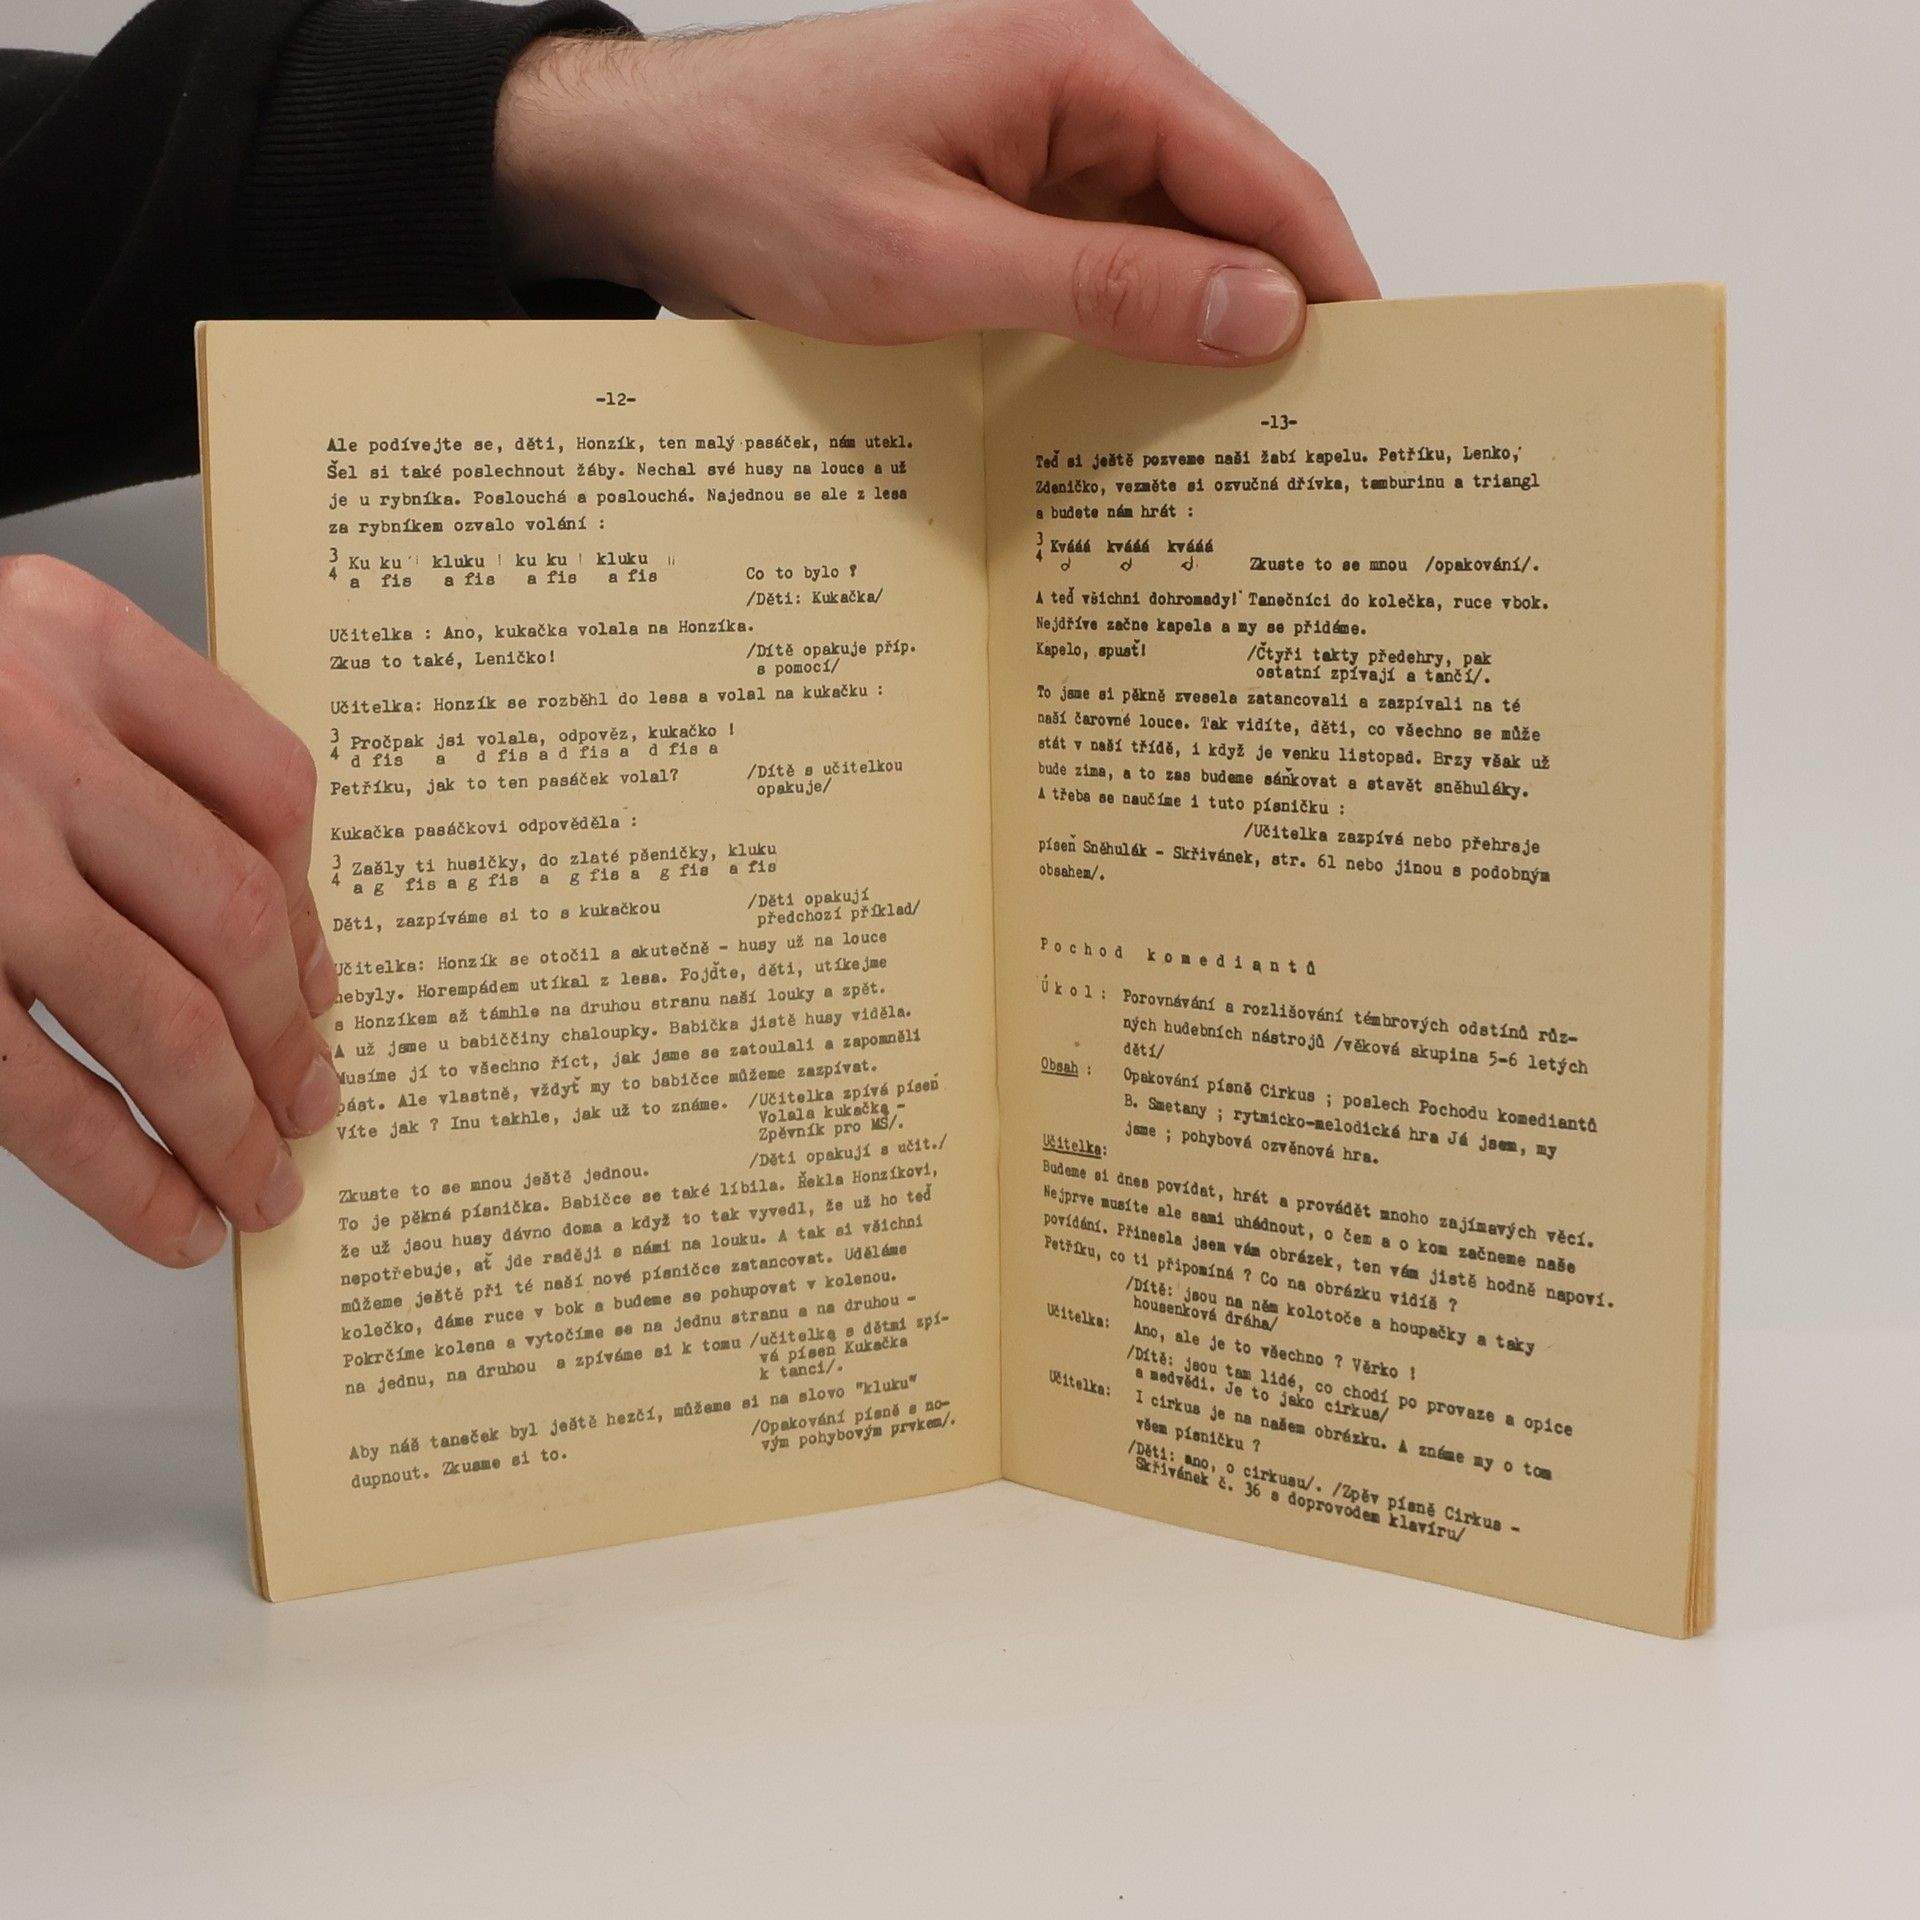 -12-
Ale podívejte se, děti, Honzík, ten malý pasáček, nám utekl.
Šel si také poslechnout žáby. Nechal své husy na louce a už
je u rybníka. Poslouchá a poslouchá. Najednou se ale z lesa
za rybníkem ozvalo volání :
3/4 Ku ku kluku ku ku kluku
a fis a fis a fis a fis
Co to bylo ?
/Děti: Kukačka/
Učitelka : Ano, kukačka volala na Honzíka.
Zkus to také, Leničko! /Dítě opakuje příp.
s pomocí/
Učitelka: Honzík se rozběhl do lesa a volal na kukačku :
3/4 Pročpak jsi volala, odpověz, kukačko !
d fis a d fis a d fis a d fis a
Petříku, jak to ten pasáček volal? /Dítě s učitelkou
opakuje/
Kukačka pasáčkovi odpověděla :
3/4 Zašly ti husičky, do zlaté pšeničky, kluku
a g fis a g fis a g fis a g fis a fis
Děti, zazpíváme si to s kukačkou /Děti opakují
předchozí příklad/
Učitelka: Honzík se otočil a skutečně - husy už na louce
nebyly. Horempádem utíkal z lesa. Pojďte, děti, utíkejme
s Honzíkem až támhle na druhou stranu naší louky a zpět.
A už jsme u babiččiny chaloupky. Babička jistě husy viděla.
Musíme jí to všechno říct, jak jsme se zatoulali a zapomněli
pást. Ale vlastně, vždyť my to babičce můžeme zazpívat.
Víte jak ? Inu takhle, jak už to známe. /Učitelka zpívá píseň
Volala kukačka -
Zpěvník pro MŠ/.
/Děti opakují s učit./
Zkuste to se mnou ještě jednou.
To je pěkná písnička. Babičce se také líbila. Řekla Honzíkovi,
že už jsou husy dávno doma a když to tak vyvedl, že už ho teď
nepotřebuje, ať jde raději s námi na louku. A tak si všichni
můžeme ještě při té naší nové písničce zatancovat. Uděláme
kolečko, dáme ruce v bok a budeme se pohupovat v kolenou.
Pokrčíme kolena a vytočíme se na jednu stranu a na druhou -
na jednu, na druhou a zpíváme si k tomu /učitelka s dětmi zpí-
vá písen Kukačka
k tanci/.
Aby náš taneček byl ještě hezčí, můžeme si na slovo "kluku"
dupnout. Zkusme si to. /Opakování písně s no-
vým pohybovým prvkem/.
-13-
Teď si ještě pozveme naši žabí kapelu. Petříku, Lenko,
Zdeničko, vezměte si ozvučná dřívka, tamburinu a triangl
a budete nám hrát :
3/4 Kvááá kvááá kvááá
Zkuste to se mnou /opakování/.
A teď všichni dohromady! Tanečníci do kolečka, ruce vbok.
Nejdříve začne kapela a my se přidáme.
Kapelo, spusť! /Čtyři takty předehry, pak
ostatní zpívají a tančí/.
To jsme si pěkně zvesela zatancovali a zazpívali na té
naší čarovné louce. Tak vidíte, děti, co všechno se může
stát v naší třídě, i když je venku listopad. Brzy však už
bude zima, a to zas budeme sáňkovat a stavět sněhuláky.
A třeba se naučíme i tuto písničku :
/Učitelka zazpívá nebo přehraje
píseň Sněhulák - Skřivánek, str. 61 nebo jinou s podobným
obsahem/.
P o c h o d k o m e d i a n t ů
Ú k o l : Porovnávání a rozlišování témbrových odstínů růz-
ných hudebních nástrojů /věková skupina 5-6 letých
dětí/
Obsah : Opakování písně Cirkus ; poslech Pochodu komediantů
B. Smetany ; rytmicko-melodická hra Já jsem, my
jsme ; pohybová ozvěnová hra.
Učitelka:
Budeme si dnes povídat, hrát a provádět mnoho zajímavých věcí.
Nejprve musíte ale sami uhádnout, o čem a o kom začneme naše
povídání. Přinesla jsem vám obrázek, ten vám jistě hodně napoví.
Petříku, co ti připomíná ? Co na obrázku vidíš ?
/Dítě: jsou na něm kolotoče a houpačky a taky
housenková dráha/
Učitelka: Ano, ale je to všechno ? Věrko !
/Dítě: jsou tam lidé, co chodí po provaze a opice
a medvědi. Je to jako cirkus/
Učitelka: I cirkus je na našem obrázku. A známe my o tom
všem písničku ?
/Děti: ano, o cirkusu/. /Zpěv písně Cirkus -
Skřivánek č. 36 s doprovodem klavíru/